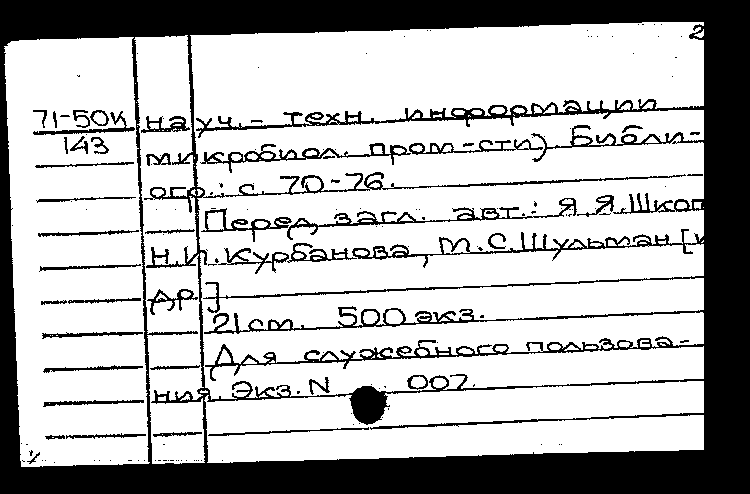 2
71-50к науч.- техн. информации
143 микробиол. пром-сти) Библи-
огр.: с. 70-76.
Перед загл. авт.: Я.Я.Шкоп
Н.И.Курбанова, М.С.Шульман [и
др]
21 cm. 500 экз.
Для служебного пользова-
ния. Экз. N 007.